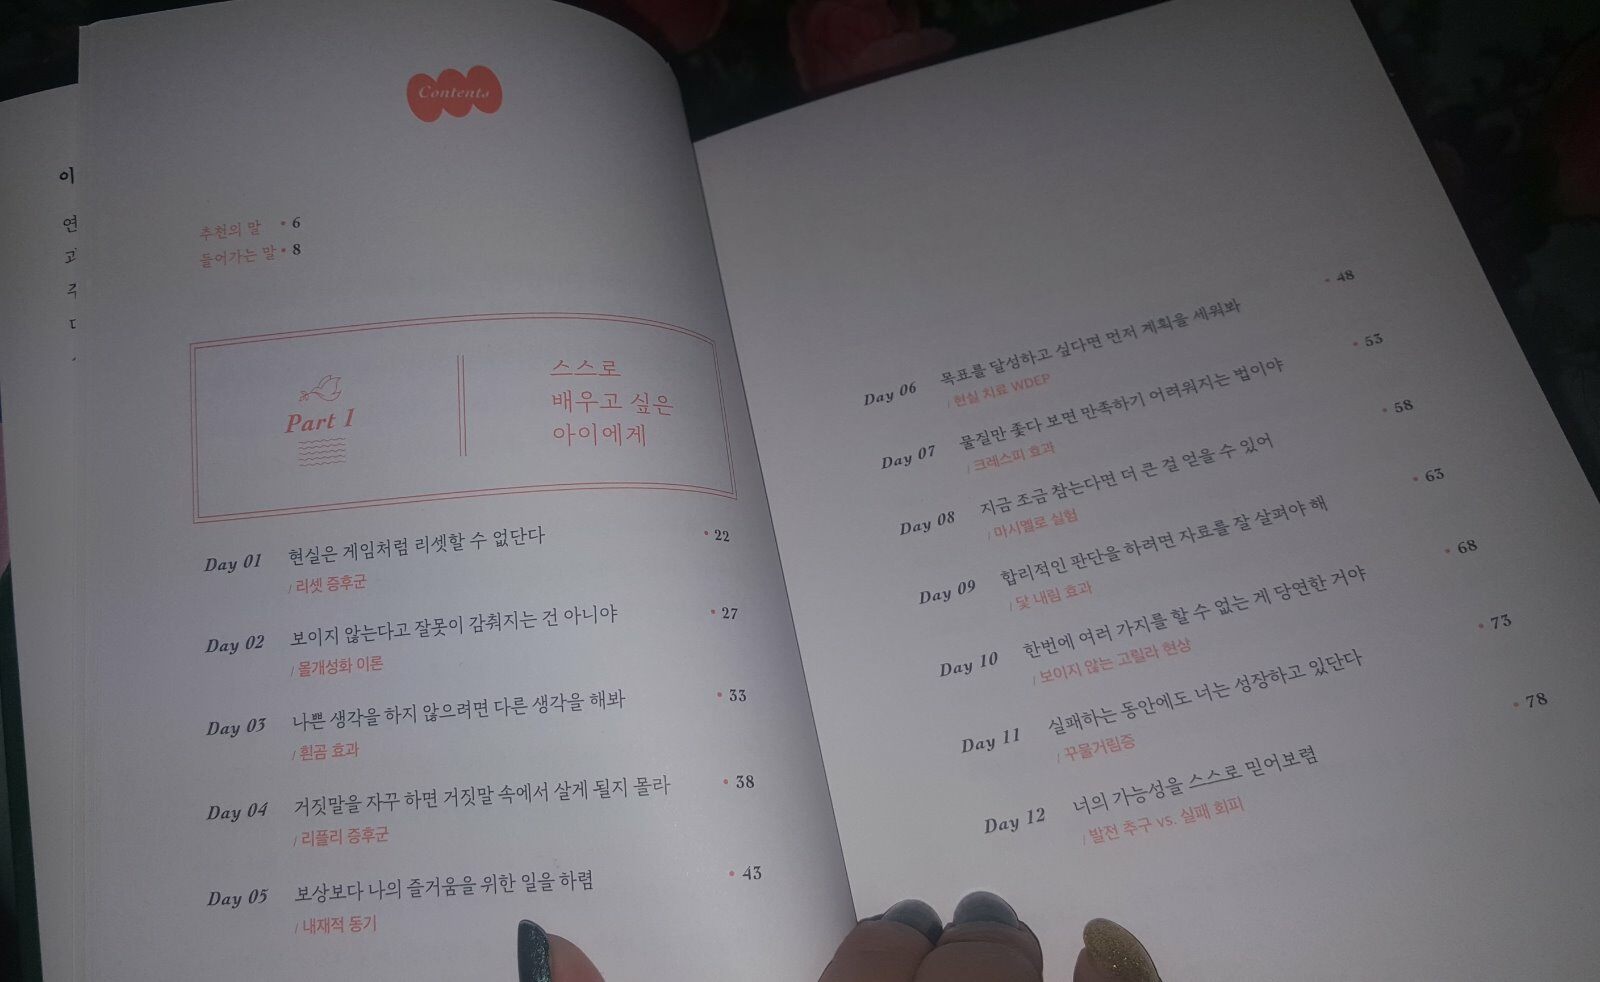 Contents
추천의 말 • 6
들어가는 말 • 8
Part 1
스스로
배우고 싶은
아이에게
Day 01 현실은 게임처럼 리셋할 수 없단다 • 22
/ 리셋 증후군
Day 02 보이지 않는다고 잘못이 감춰지는 건 아니야 • 27
/ 몰개성화 이론
Day 03 나쁜 생각을 하지 않으려면 다른 생각을 해봐 • 33
/ 흰곰 효과
Day 04 거짓말을 자꾸 하면 거짓말 속에서 살게 될지 몰라 • 38
/ 리플리 증후군
Day 05 보상보다 나의 즐거움을 위한 일을 하렴 • 43
/ 내재적 동기
Day 06 목표를 달성하고 싶다면 먼저 계획을 세워봐 • 48
/ 현실 치료 WDEP
Day 07 물질만 좇다 보면 만족하기 어려워지는 법이야 • 53
/ 크레스피 효과
Day 08 지금 조금 참는다면 더 큰 걸 얻을 수 있어 • 58
/ 마시멜로 실험
Day 09 합리적인 판단을 하려면 자료를 잘 살펴야 해 • 63
/ 닻 내림 효과
Day 10 한번에 여러 가지를 할 수 없는 게 당연한 거야 • 68
/ 보이지 않는 고릴라 현상
Day 11 실패하는 동안에도 너는 성장하고 있단다 • 73
/ 꾸물거림증
Day 12 너의 가능성을 스스로 믿어보렴 • 78
/ 발전 추구 vs. 실패 회피